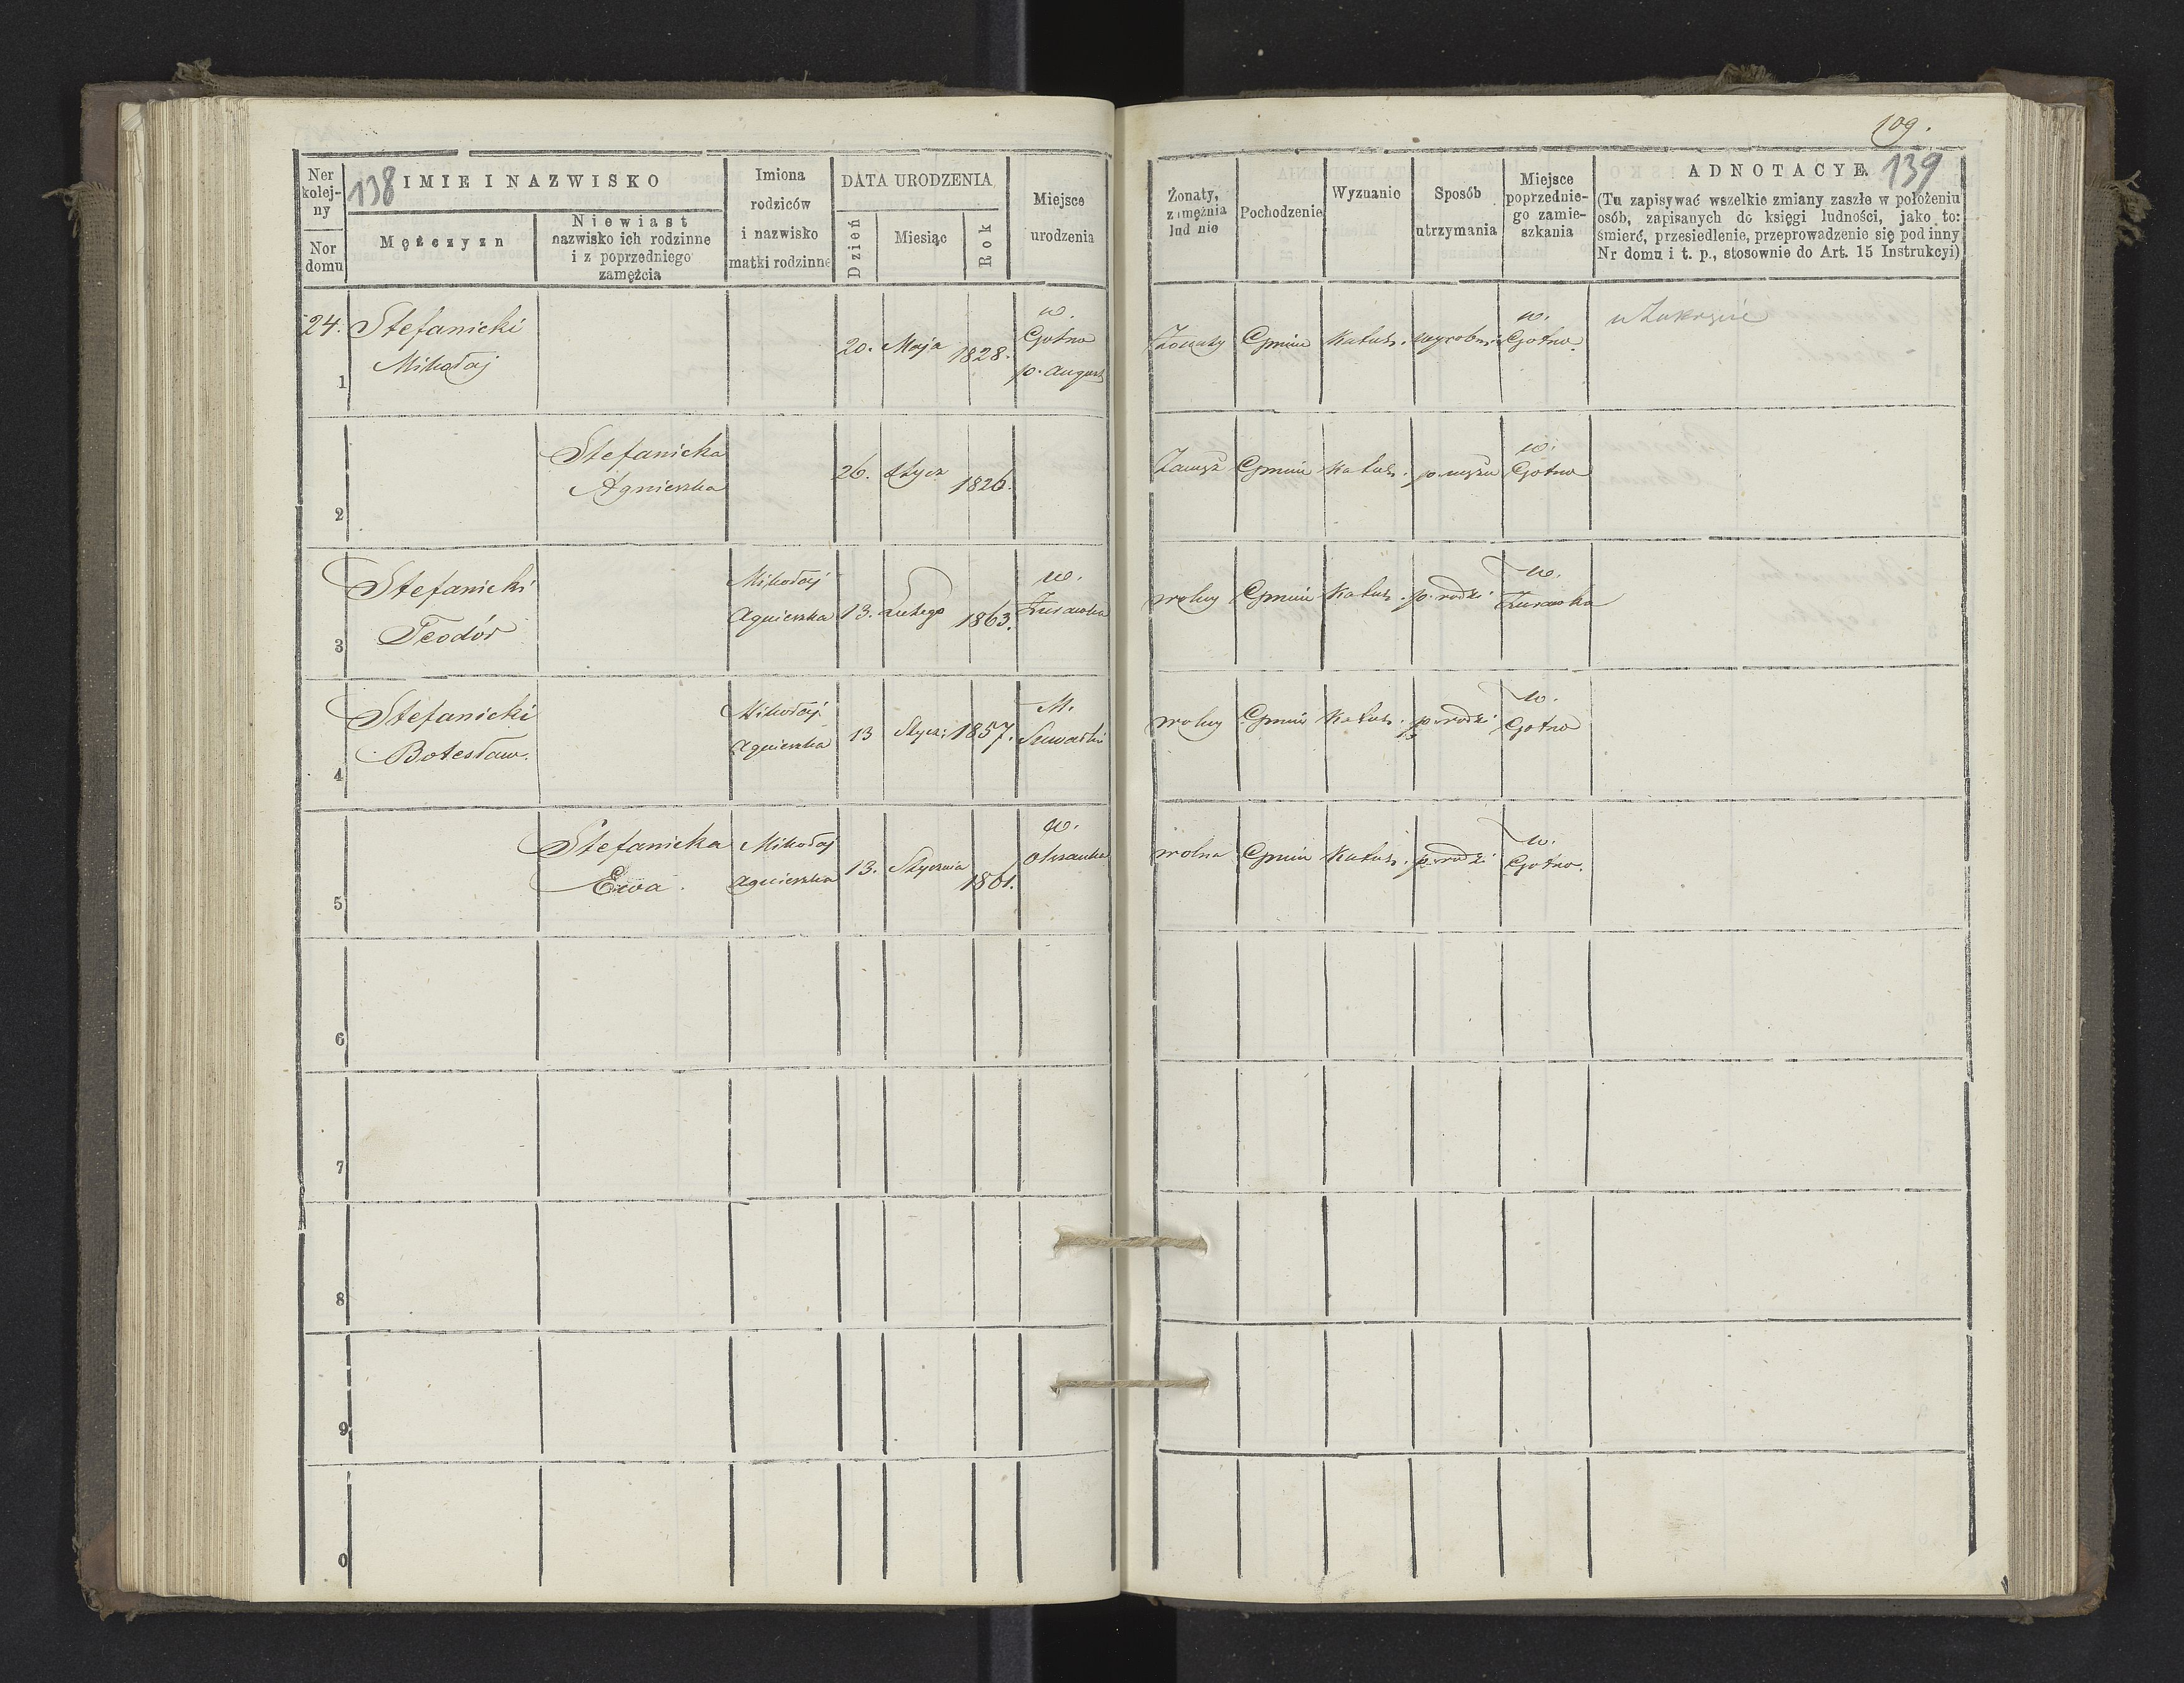 109.
138
139
Ner
kolej-
ny
Nor
domu
IMIE I NAZWISKO
Mężczyzn
Niewiast
nazwisko ich rodzinne
i z poprzedniego
zamężcia
Imiona
rodziców
i nazwisko
matki rodzinne
DATA URODZENIA
Dzień
Miesiąc
Rok
Miejsce
urodzenia
Żonaty,
zamężnia
lud nie
Pochodzenie
Wyznanie
Sposób
utrzymania
Miejsce
poprzednie-
go zamie-
szkania
ADNOTACYE
(Tu zapisywać wszelkie zmiany zaszłe w położeniu
osób, zapisanych do księgi ludności, jako to:
śmierć, przesiedlenie, przeprowadzenie się pod inny
Nr domu i t. p., stosownie do Art. 15 Instrukcyi)
24.
1
Stefanicki
Mikołaj
20. Maja 1828.
w.
Gotno
p. August
Żonaty Gmin Katol. wyrobni
w.
Gotno.
2
Stefanicka
Agnieszka
26. Stycz 1826.
Zamęż Gmin Katol. p. mężu
w.
Gotno
3
Stefanicki
Teodór
Mikołaj
Agnieszka
13. Lutego 1863.
w.
Żurawka
wolny Gmin Katol. p. rodzi
w.
Żurawka
4
Stefanicki
Bolesław.
Mikołaj
Agnieszka
13 Stycz: 1857.
M.
Suwałki
wolny Gmin Katol. p. rodzi
w.
Gotno
5
Stefanicka
Ewa.
Mikołaj
Agnieszka
13. Stycznia 1861.
w.
wolna Gmin Katol. p. rodzi
w.
Gotno.
6
7
8
9
0